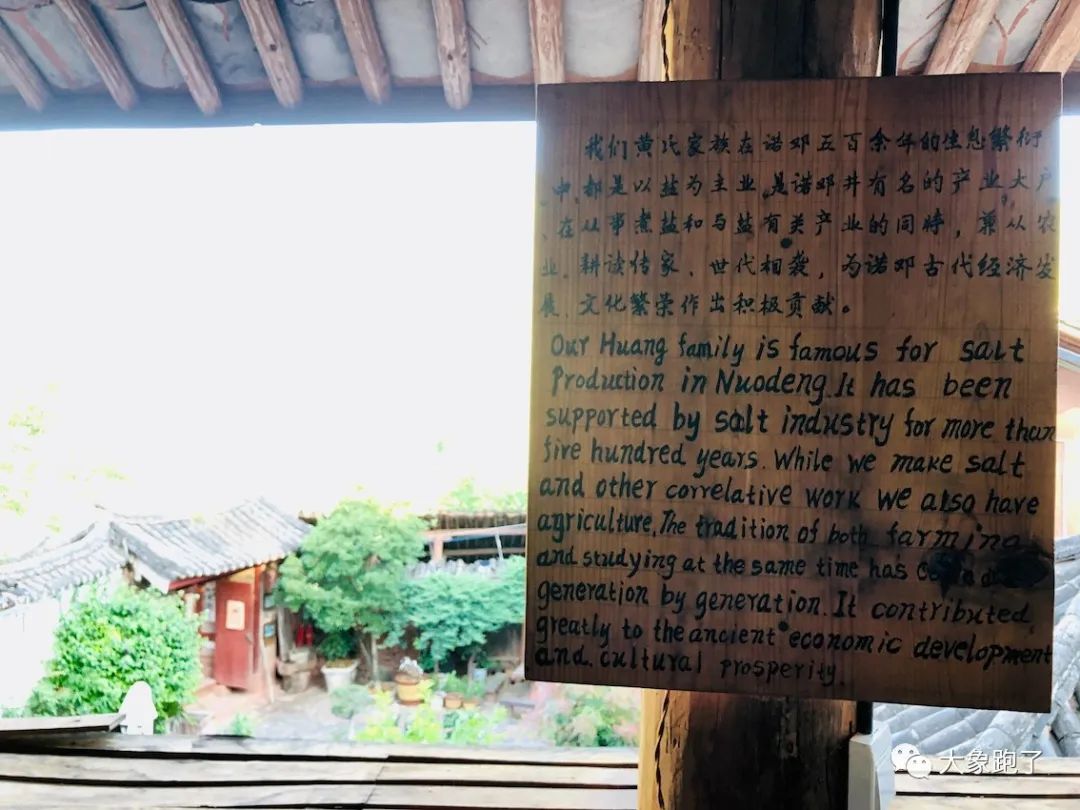 我们黄氏家族在诺邓五百余年的生息繁衍
中,都是以盐为主业,是诺邓井有名的产业大户
、在从事煮盐和与盐有关产业的同时，兼从农
业。耕读传家、世代相袭，为诺邓古代经济发
展、文化繁荣作出积极贡献。
Our Huang family is famous for salt
Production in Nuodeng.It has been
supported by salt industry for more than
five hundred years. While we make salt
and other correlative work we also have
agriculture.The tradition of both farming
and studying at the same time has
generation by generation.It contributed
greatly to the ancient economic development
and cultural prosperity.
大象跑了